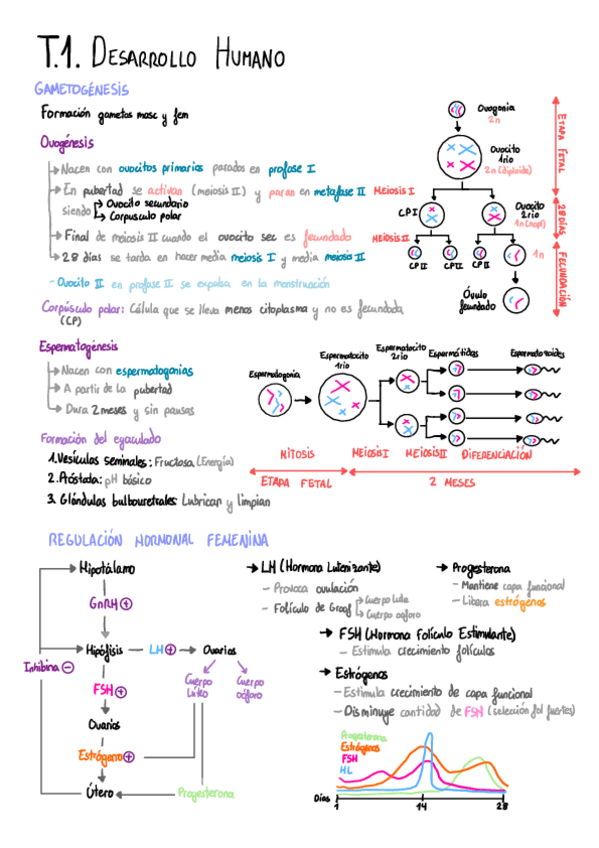 T.1. DESARROLLO HUMANO
GAMETOGÉNESIS
Formación gametos masc y fem
Ovogénesis
Nacen con ovocitos primarios parados en profase I
En pubertad se activan (meiosis II) y paran en metafase II
siendo
Ovocito secundario
Corpusculo polar
Final de meiosis II cuando el ovocito sec es fecundado
28 días se tarda en hacer media meiosis I y media meiosis II
- Ovocito II en profase II se expulsa en la menstruación
Corpúsculo polar: Célula que se lleva menos citoplasma y no es fecundada
(CP)
Ovogonia
2n
Ovocito
1rio
2n (diploide)
MEIOSIS I
CP I
Ovocito
2rio
1n (hapl)
MEIOSIS II
CP II
CP II
CP II
1n
Óvulo
fecundado
ETAPA FETAL
28 DÍAS
FECUNDACIÓN
Espermatogénesis
Nacen con espermatogonias
A partir de la pubertad
Dura 2 meses y sin pausas
Formación del eyaculado
1. Vesículas seminales: Fructosa (Energía)
2. Próstada: pH básico
3. Glándulas bulbouretrales: Lubrican y limpian
Espermatogonia
Espermatocito
1rio
Espermatocito
2rio
Espermátidas
Espermatozoides
MITOSIS
MEIOSIS I
MEIOSIS II
DIFERENCIACIÓN
ETAPA FETAL
2 MESES
REGULACIÓN HORMONAL FEMENINA
Hipotálamo
GnRH +
Hipófisis
LH +
Ovarios
Inhibina -
Cuerpo
lúteo
Cuerpo
oóforo
FSH +
Ovarios
Estrógeno +
Útero
Progesterona
LH (Hormona Luteinizante)
- Provoca ovulación
- Folículo de Graaf
Cuerpo lúteo
Cuerpo oóforo
Progesterona
- Mantiene capa funcional
- Libera estrógenos
FSH (Hormona Folículo Estimulante)
- Estimula crecimiento folículos
Estrógenos
- Estimula crecimiento de capa funcional
- Disminuye cantidad de FSH (selección fol fuertes)
Progesterona
Estrógenos
FSH
HL
Días
1
14
28